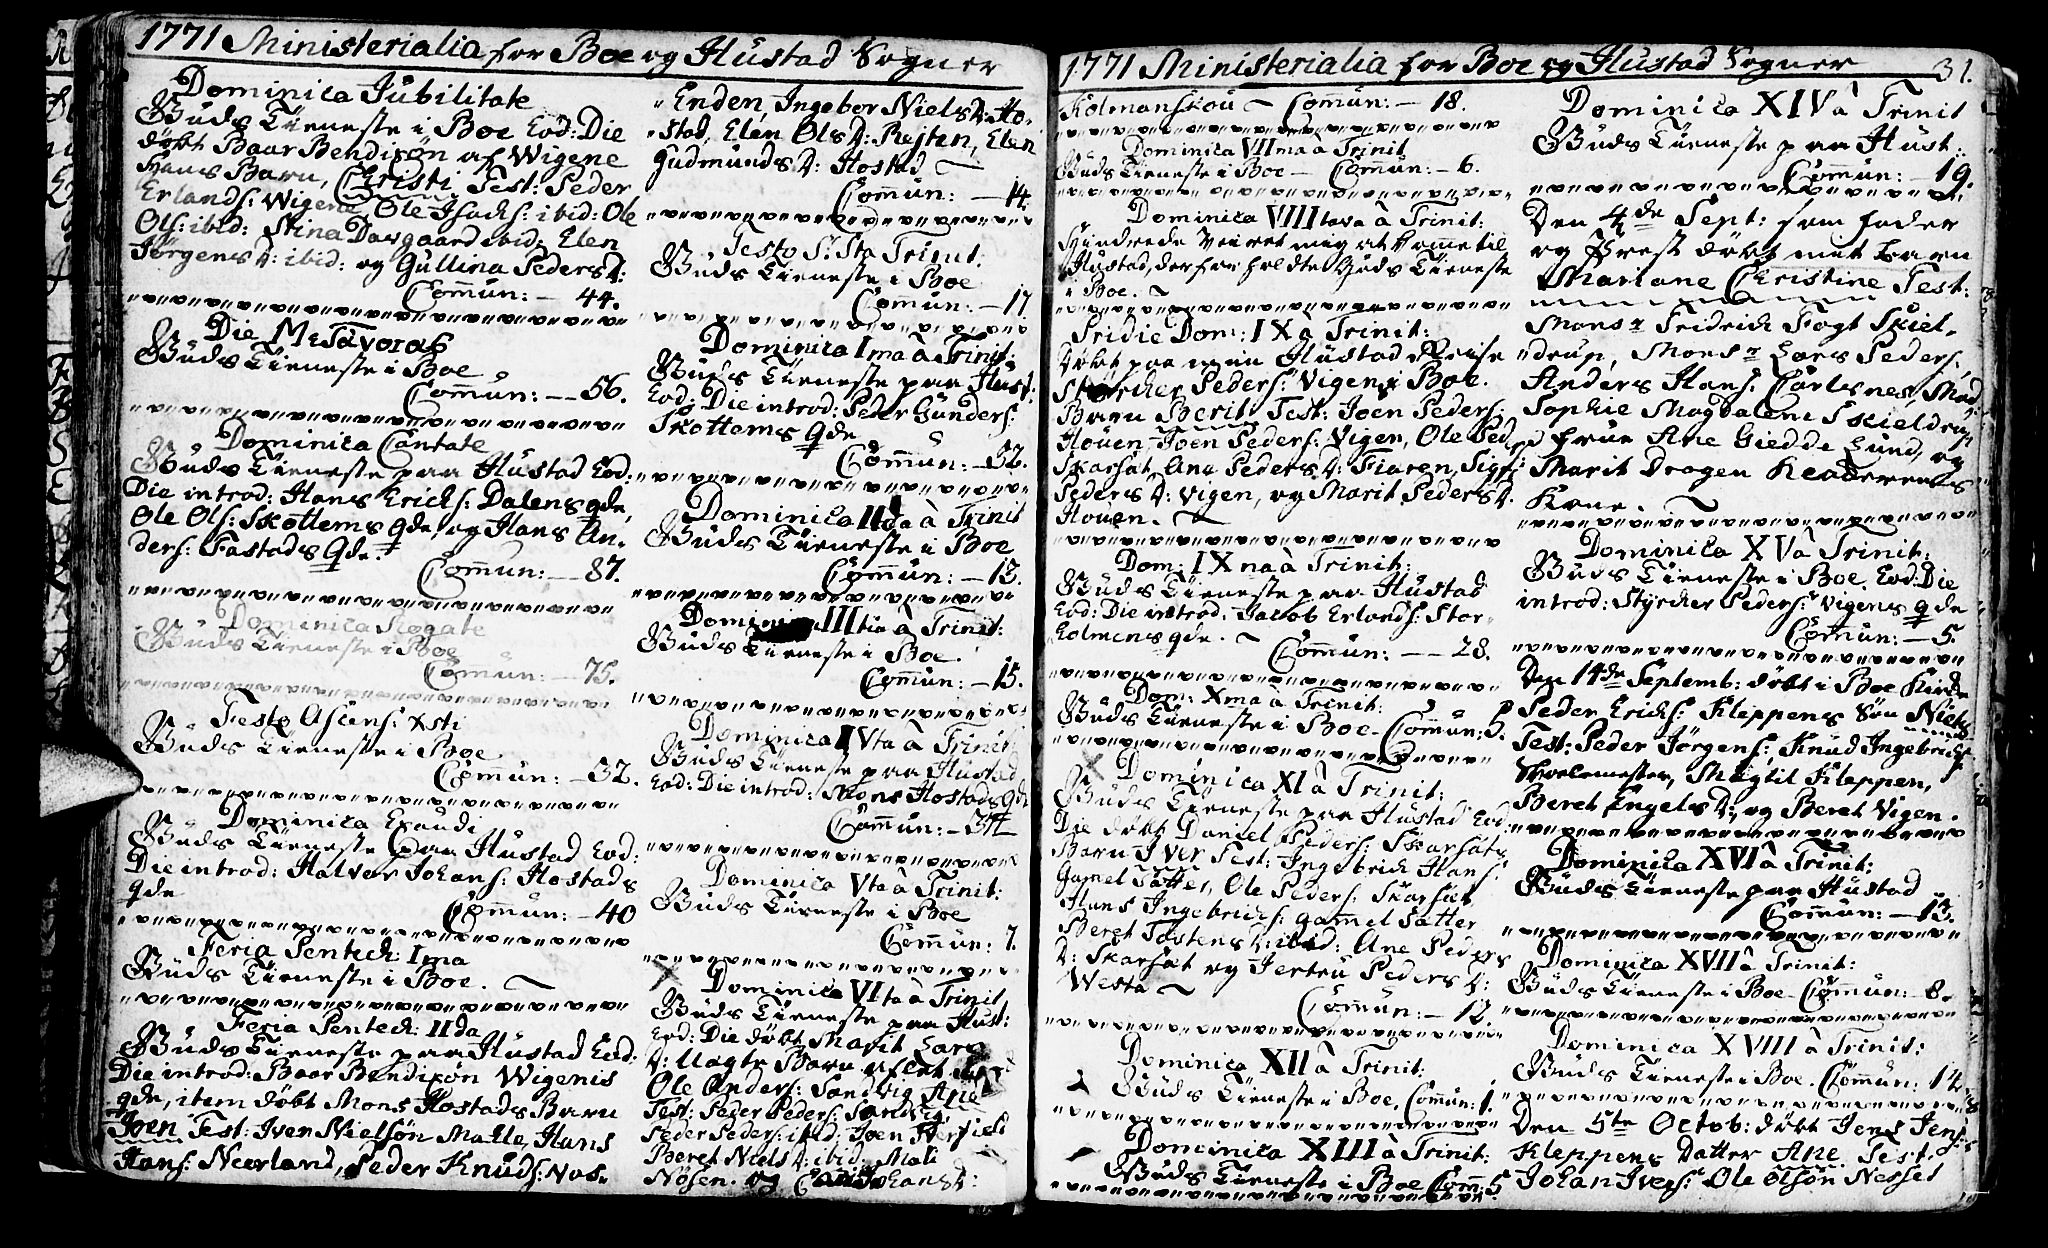 1771 Ministerialia for Boe og Hustad Sogner
Dominica Jubilitate
Guds Tieneste i Boe Eod: Die
döbt Baar Bendixön af Wigene
Hans Barn, Christi Test: Peder
Erlands: Wigene, Ole Isachs: ibid: Ole
Ols: ibid: Stina Dausgaard ibid: Elen
Jörgensd: ibid: og Gullina Pedersd:
Commun: — 44.
Die
Guds Tieneste i Boe
Commun: — 56.
Dominica Cantate
Guds Tieneste paa Hustad Eod:
Die introd: Hans Erichs: Dalens qde,
Ole Ols: Skottems qde, og Hans An-
ders: Fastads qde.
Commun: — 87.
Dominica Rogate
Guds Tieneste i Boe
Commun: — 75.
Festo Ascens: Xsti
Guds Tieneste i Boe
Commun: — 32.
Dominica Exaudi
Guds Tieneste paa Hustad Eod:
Die introd: Halvor Johans: Hostads
qde
Commun: — 40
Feria Pentech: Ima
Guds Tieneste i Boe.
Feria Pentech: IIda
Guds Tieneste paa Hustad Eod:
Die introd: Baar Bendixön Wigenis
qde, item döbt Mons Hostads Barn
Joen Test: Iver Nielsön Malle, Hans
Hans: Neerland, Peder Knuds: Nos-
Enden, Ingebor Nielsd: Ho-
stad, Elen Olsd: Rejten, Elen
Gudmundsd: Hostad
Commun: — 14.
Festo S: Sta Trinit:
Guds Tieneste i Boe
Commun: — 17.
Dominica Ima à Trinit:
Guds Tieneste paa Hust:
Eod: Die introd: Peder Gunders:
Skottems qde
Commun: — 32.
Dominica IIda à Trinit
Guds Tieneste i Boe
Commun: — 13.
Dominica IIItia à Trinit:
Guds Tieneste i Boe.
Commun: — 15.
Dominica IVta à Trinit:
Guds Tieneste paa Hustad
Eod: Die introd: Mons Hostads qde
Commun: — 34
Dominica Vta à Trinit:
Guds Tieneste i Boe
Commun: 7.
Dominica VIta à Trinit
Guds Tieneste paa Hust:
Eod: Die döbt Marit Lars
d: Uægte Barn
Ole Anders: Sandvig Ane
Test: Peder Peders: Sandvig
Peder Peders: ibid: Joen
Beret Nielsd: ibid: Mali
Nösen. og Johansd:
1771 Ministerialia for Boe og Hustad Sogner 31.
Kolmanskou — Commun: — 18.
Dominica VIIma à Trinit
Guds Tieneste i Boe — Commun: — 6.
Dominica VIIItava à Trinit:
Hindrede Veiret mig at kome til
Hustad, derfor holdte Guds Tieneste
i Boe.
Pridie Dom: IX a Trinit:
Döbt paa min Hustad Reise
Stÿrcher Peders: Vigen i Boe.
Barn Berit. Test: Joen Peders:
Houen, Joen Peders: Vigen, Ole Peds
Skarsæt, Ane Pedersd: Fiaren, Sigs:
Pedersd: Vigen, og Marit Pedersd.
Houen.
Dom: IXna à Trinit:
Guds Tieneste paa Hustad
Eod: Die introd: Jacob Erlands: Stor-
holmens qde.
Commun: — 28.
Dom: Xma à Trinit:
Guds Tieneste i Boe — Commun: 5.
Dominica XI à Trinit:
Guds Tieneste paa Hustad Eod:
Die döbt Daniel Peders: Skarsæts
Barn Iver Test: Ingebrich Hans:
Gamel Sætter, Ole Peders: Skarsæt
Hans Ingebrichs: Gammel Sætter
Beret Tostensd: ibid: Ane Peders
d: Skarsæt og Jertru Pedersd:
Westa
Commun: — 12
Dominica XII à Trinit:
Guds Tieneste i Boe, Commun: 1.
Dominica XIII à Trinit:
Guds Tieneste i Boe Comm: 5
Dominica XIV à Trinit
Guds Tieneste paa Hust:
Commun: — 19.
Den 4de Sept: som fader
og Præst döbt mit barn
Mariane Christine Test:
Monsr Fridrich Fogt Skiel-
drup, Monsr Lars Peders:
Anders Hans: Carlsnes, Mad
Sophie Magdalene Skieldrup
frue Ane Giedde Lund, og
Marit Dragen
Kone.
Dominica XV à Trinit:
Guds Tieneste i Boe. Eod: Die
introd: Styrcher Peders: Vigens qde
Commun: — 5.
Den 14de Septemb: döbt i Boe Kirke
Peder Erichs: Kleppens Sön Niels
Test: Peder Jörgens: Knud Ingebrichs:
Skolemester, Magtil Kleppen,
Beret Engelsd: og Beret Vigen.
Dominica XVI à Trinit:
Guds Tieneste paa Hustad
Commun: — 13.
Dominica XVII à Trinit:
Guds Tieneste i Boe — Commun: — 8.
Dominica XVIII à Trinit:
Guds Tieneste i Boe. Commun: 12.
Den 5te Octob: döbt Jens Jens:
Kleppens Datter Ane. Test:
Johan Ivers: Ole Olsön Nesset